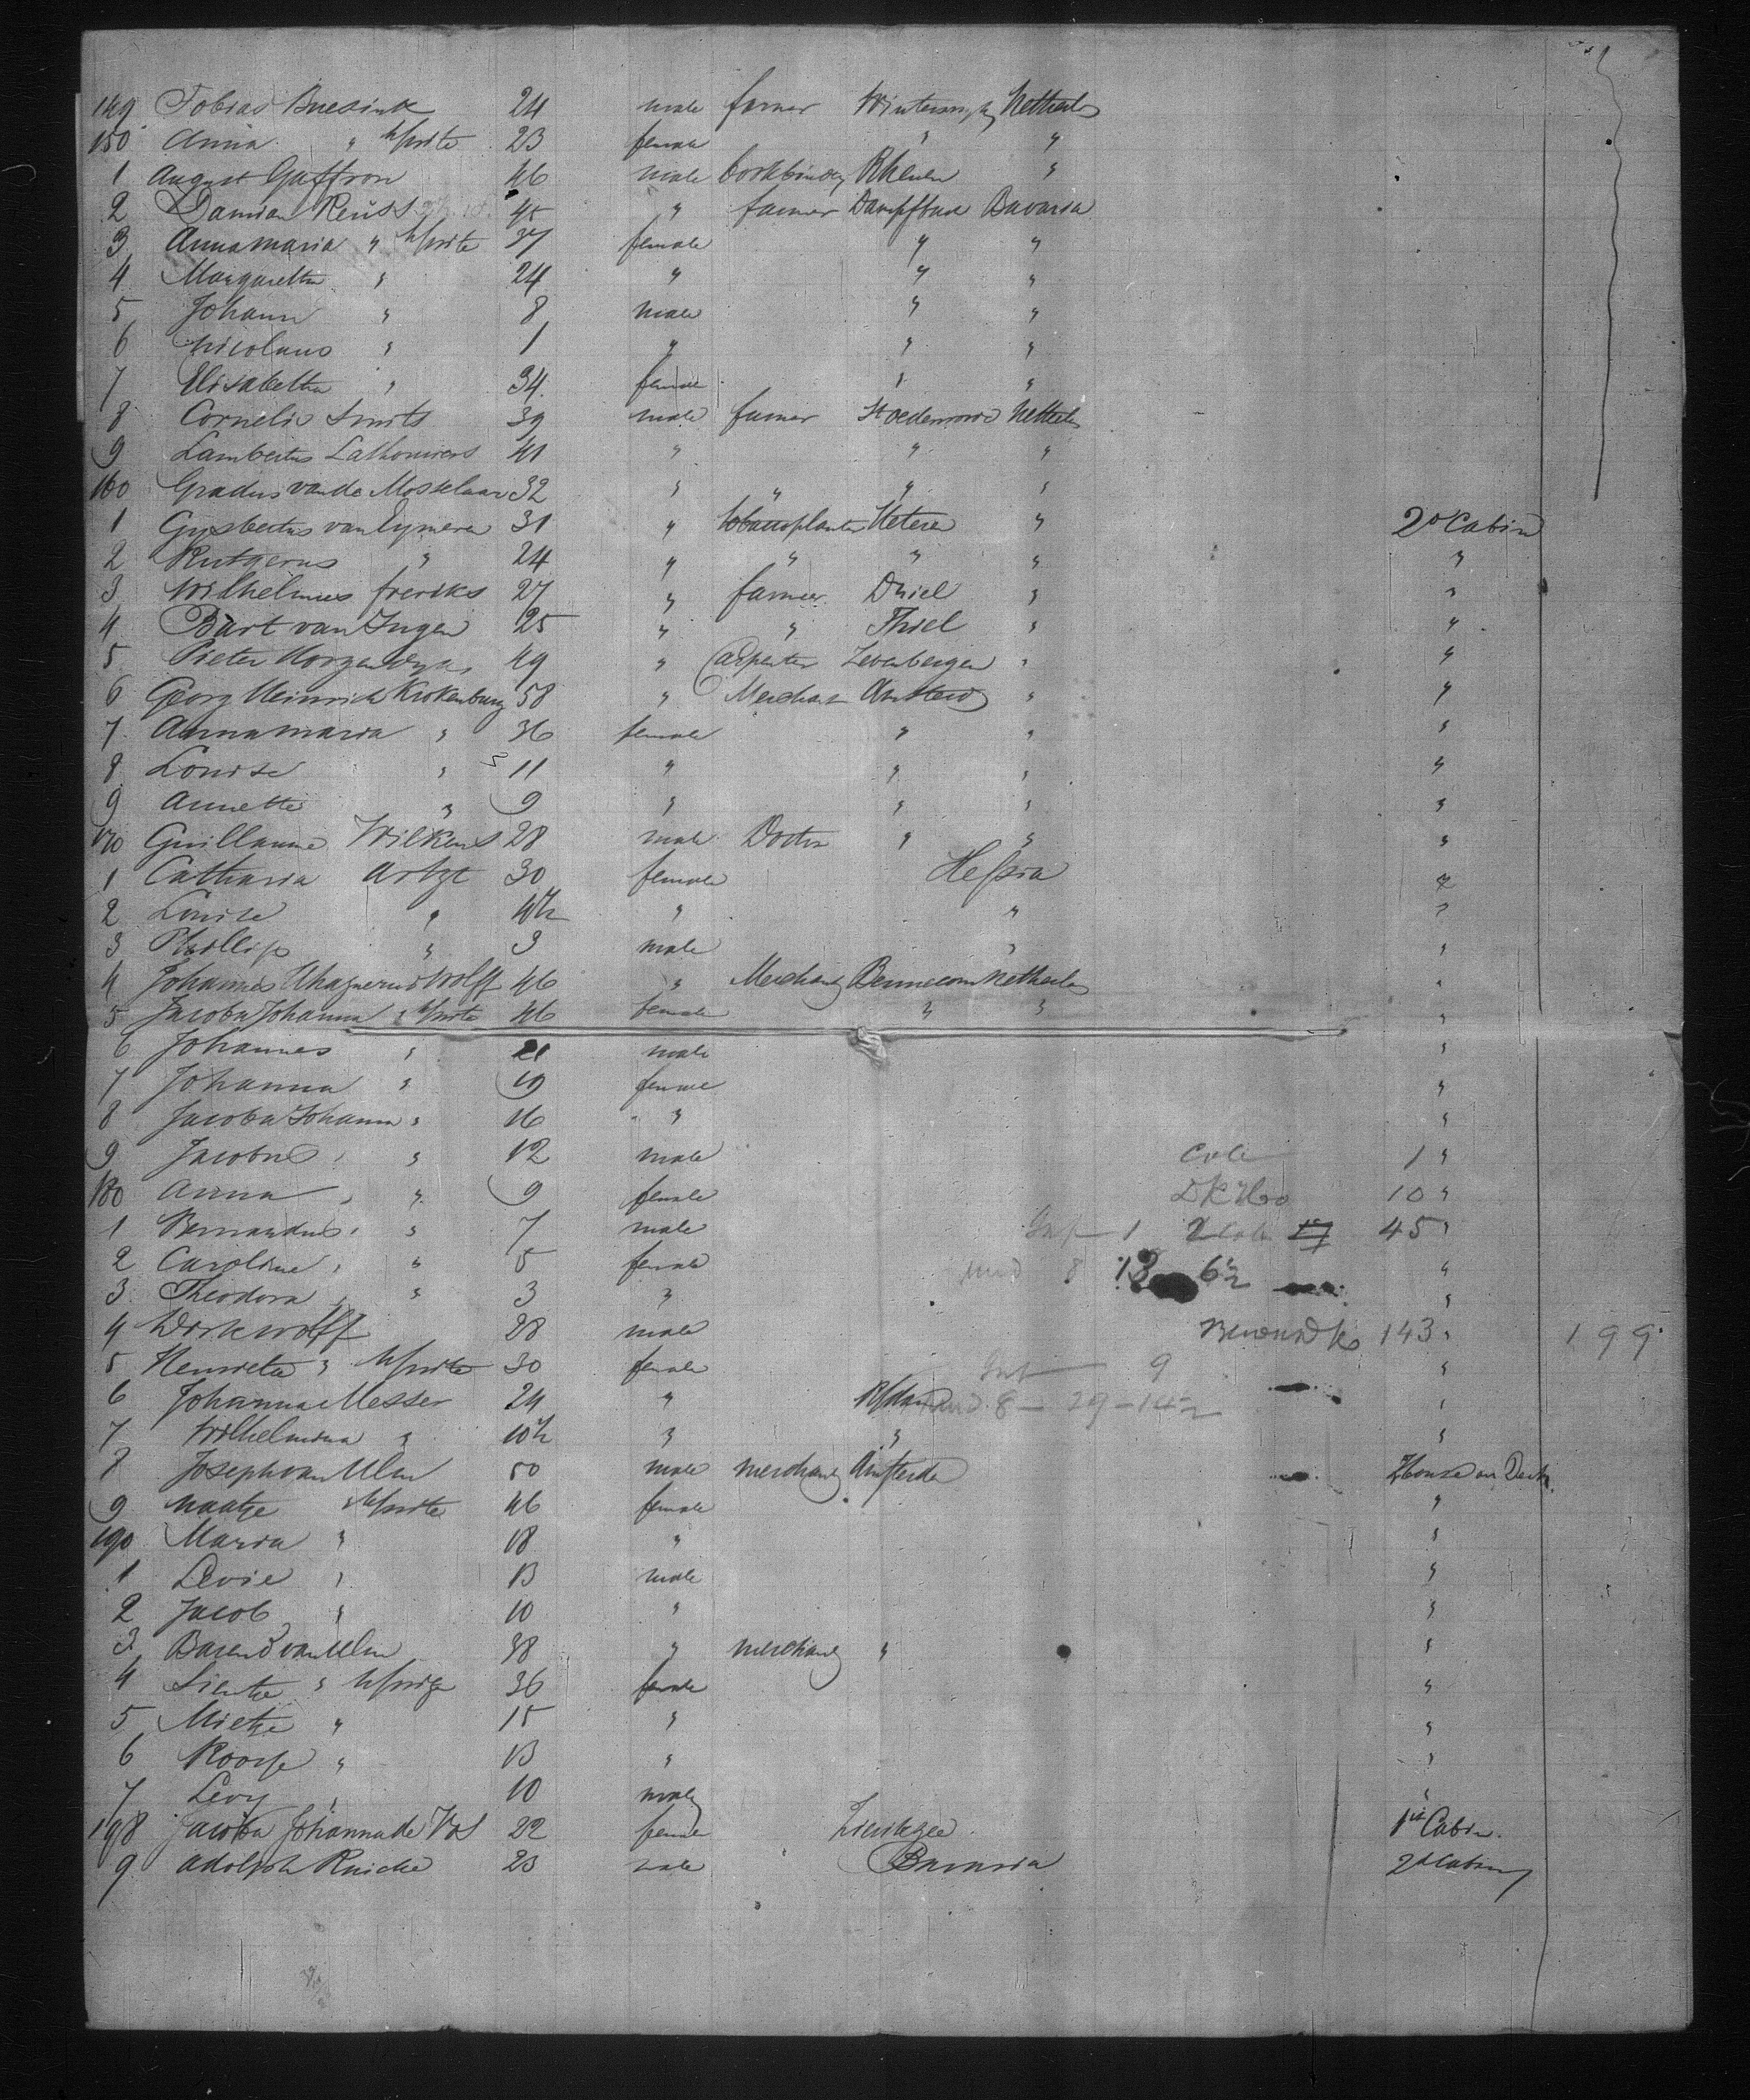 149 Tobias Buesink 24 male farmer Winterswyk Netherls
150 Anna " h/wite 23 female " "
1 August Gaffron 46 male bookbinder Rhenen "
2 Damian Reuss 45 " farmer Dampfbac Bavaria
3 Annamaria " h/wite 37 female " "
4 Margaretha " 24 " " "
5 Johann " 8 male " "
6 Nicolaus " 1 " " "
7 Elisabetha " 34 female " "
8 Cornelis Smits 39 male farmer Netherls
9 Lambertus Lathouwers 41 " " "
160 Gradus van de Mosselaar 32 " " " "
1 Gysbertus van Eymeren 31 " tobaccoplanter Hetere " 2d Cabin
2 Rutgerus " 24 " " " " "
3 Wilhelmus freriks 27 " farmer Driel " "
4 Bart van Ingen 25 " " Thiel " "
5 Pieter 49 " Carpenter Zevenbergen " "
6 Georg Heinrich Krokenburg 58 " Merchant Amsterd " "
7 Annamaria " 36 female " " "
8 Louise " 11 " " " "
9 Annette " 9 " " " "
170 Guillaume Wilkens 28 male Doctor " " "
1 Catharia Artzt 30 female Hessia "
2 Louise " 4½ " " "
3 Phillip " 3 male " "
4 Johannes Wolff 46 " Merchant Bennecom Netherls "
5 Jacoba Johanna " h/wite 46 female " " "
6 Johannes " 21 male "
7 Johanna " 19 female "
8 Jacoba Johanna " 16 " "
9 Jacobus " 12 male 1 "
180 Anna " 9 female 10 "
1 Bernardus " 7 male Inf 1 45 "
2 Caroline " 5 female 8 13 6½ "
3 Theodora " 3 " "
4 Dirk Wolff 28 male 143 " 199
5 Henrieta " h/wite 30 female Inf 9 "
6 Johanna Messer 24 " R/dam 8 - 29 - 14½ "
7 Wilhelmina " 10½ " " "
8 Joseph van Ulm 50 male merchant Amsterda House on Deck
9 Naatje " h/wite 46 female "
190 Maria " 18 " "
1 Levie " 13 male "
2 Jacob " 10 " "
3 Barend van Ulm 38 " merchant " "
4 Sientje " h/wife 36 female "
5 Mietje " 15 " "
6 Roosje " 13 " "
7 Levy " 10 male "
198 Jacoba Johanna de Vos 22 female Zierikzee 1st Cabin.
9 Adolph Ruicke 23 male Bavaria 2d Cabin